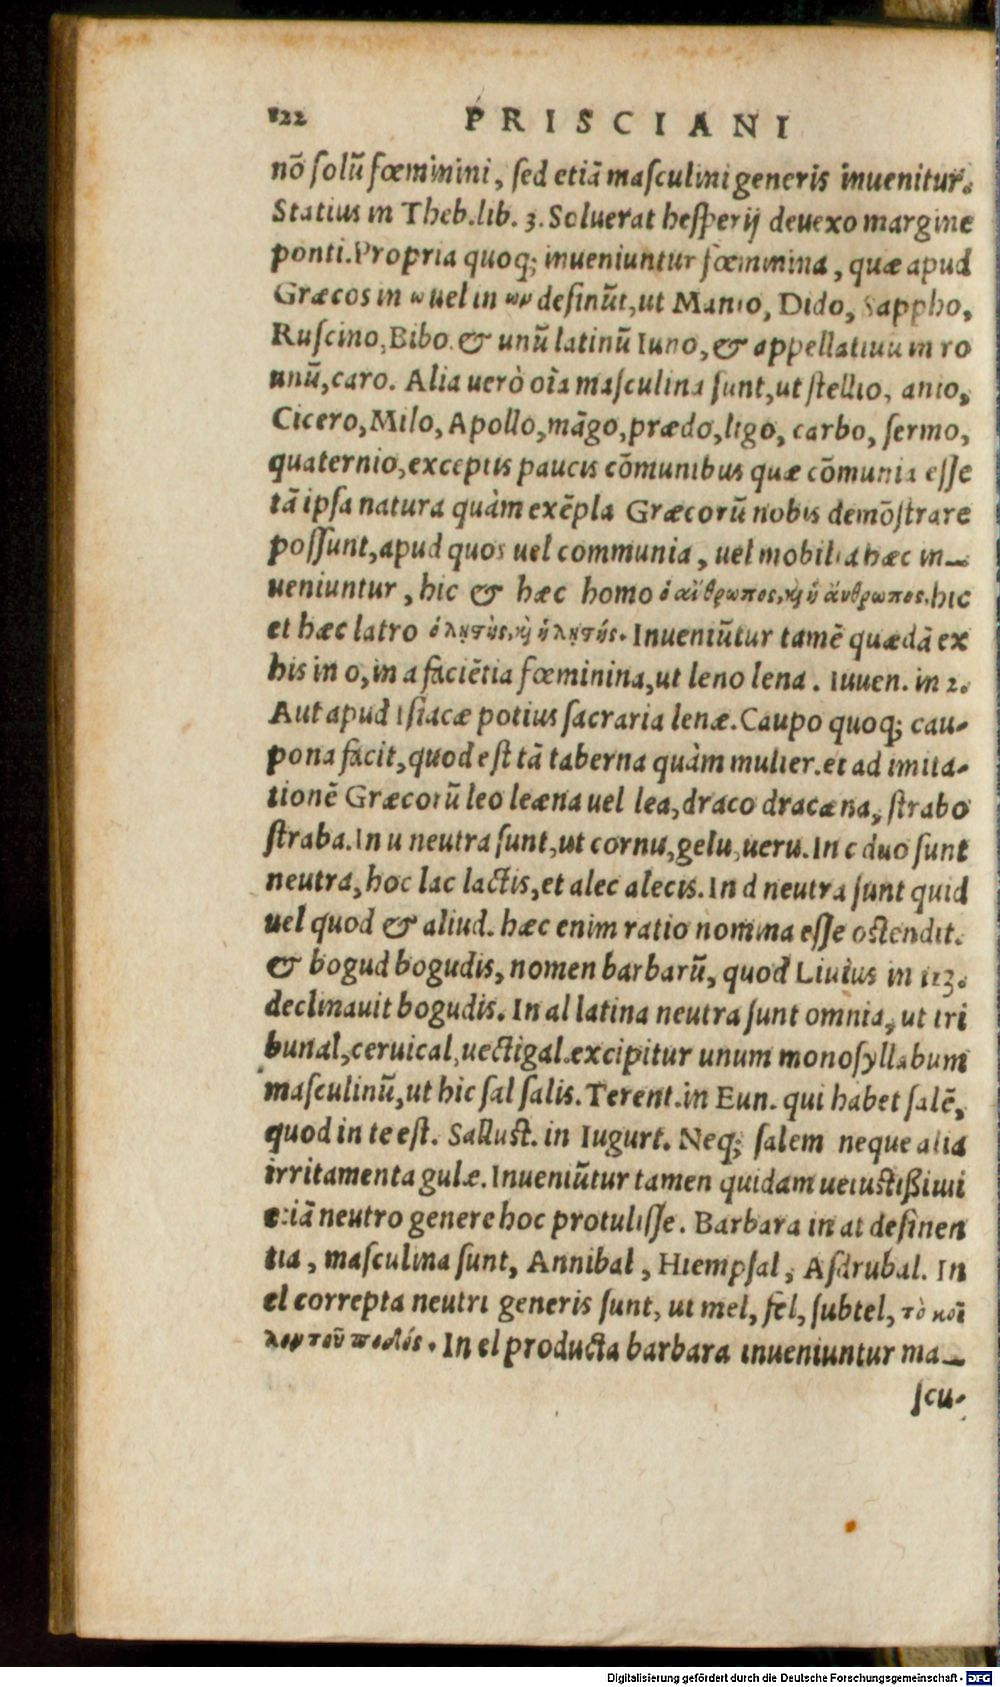 122 PRISCIANI
nō ſolū fœminini, ſed etiā maſculini generis inuenitur.
Statius in Theb.lib. 3. Soluerat heſperij deuexo margine
ponti. Propria quoq; inueniuntur fœminina, quæ apud
Græcos in ω uel in ων deſinūt, ut Manto, Dido, Sappho,
Ruſcino, Bibo. & unū latinū Iuno, & appellatiuū in ro
unū, caro. Alia uerò oīa maſculina ſunt, ut ſtellio, anio,
Cicero, Milo, Apollo, māgo, prædo, ligo, carbo, ſermo,
quaternio, exceptis paucis cōmunibus quæ cōmunia eſſe
tā ipſa natura quàm exēpla Græcorū nobis demōſtrare
poſſunt, apud quos uel communia, uel mobilia hæc in-
ueniuntur, hic & hæc homo ὁ ἄνθρωπος, καὶ ἡ ἄνθρωπος. hic
et hæc latro ὁ λῃστὴς, καὶ ἡ λῃστής. Inueniūtur tamē quædā ex
his in o, in a faciētia fœminina, ut leno lena. Iuuen. in 2.
Aut apud iſiacæ potius ſacraria lenæ. Caupo quoq; cau-
pona facit, quod eſt tā taberna quàm mulier. et ad imita-
tionē Græcorū leo leæna uel lea, draco dracæna, ſtrabo
ſtraba. In u neutra ſunt, ut cornu, gelu, ueru. In c duo ſunt
neutra, hoc lac lactis, et alec alecis. In d neutra ſunt quid
uel quod & aliud. hæc enim ratio nomina eſſe oſtendit.
& bogud bogudis, nomen barbarū, quod Liuius in 113.
declinauit bogudis. In al latina neutra ſunt omnia, ut tri
bunal, ceruical, uectigal. excipitur unum monoſyllabum
maſculinū, ut hic ſal ſalis. Terent. in Eun. qui habet ſalē,
quod in te eſt. Salluſt. in Iugurt. Neq; ſalem neque alia
irritamenta gulæ. Inueniūtur tamen quidam uetuſtißimi
etiā neutro genere hoc protuliſſe. Barbara in at deſinen
tia, maſculina ſunt, Annibal, Hiempſal, Aſdrubal. In
el correpta neutri generis ſunt, ut mel, fel, ſubtel, τὸ κοῖ
λον τοῦ ποδός. In el producta barbara inueniuntur ma-
ſcu-
Digitalisierung gefördert durch die Deutsche Forschungsgemeinschaft - DFG